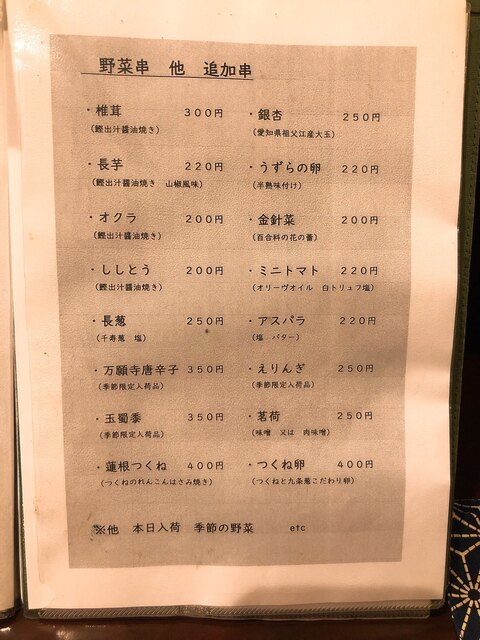 野菜串 他 追加串
・椎茸 300円
(鰹出汁醤油焼き)
・長芋 220円
(鰹出汁醤油焼き 山椒風味)
・オクラ 200円
(鰹出汁醤油焼き)
・ししとう 200円
(鰹出汁醤油焼き)
・長葱 250円
(千寿葱 塩)
・万願寺唐辛子 350円
(季節限定入荷品)
・玉蜀黍 350円
(季節限定入荷品)
・蓮根つくね 400円
(つくねのれんこんはさみ焼き)
・銀杏 250円
(愛知県祖父江産大玉)
・うずらの卵 220円
(半熟味付け)
・金針菜 200円
(百合科の花の蕾)
・ミニトマト 220円
(オリーヴオイル 白トリュフ塩)
・アスパラ 220円
(塩 バター)
・えりんぎ 250円
(季節限定入荷品)
・茗荷 250円
(味噌 又は 肉味噌)
・つくね卵 400円
(つくねと九条葱こだわり卵)
※他 本日入荷 季節の野菜 etc